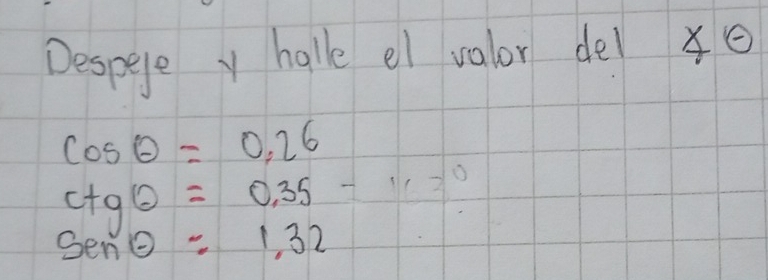 Despeje y halle el valor del ∡ θ
Cos θ = 0,26
Ctg θ = 0,35 -
Sen θ = 1,32